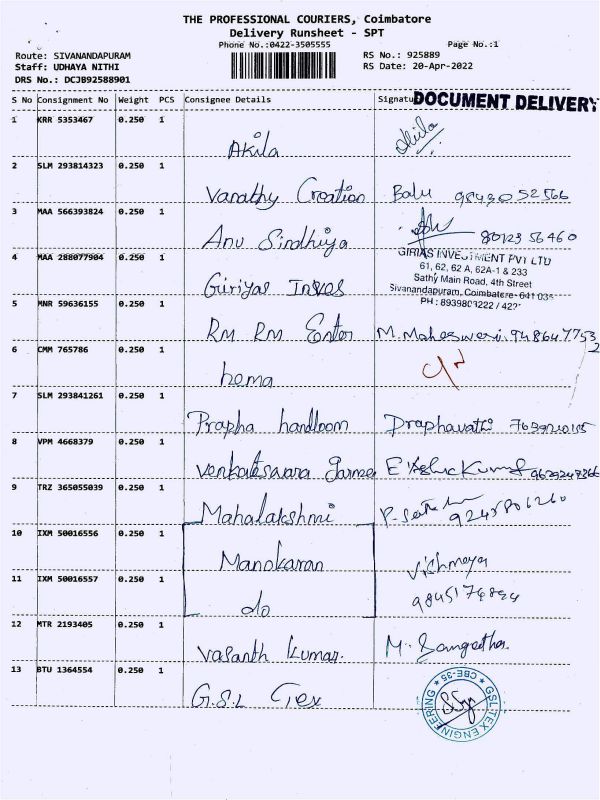 THE PROFESSIONAL COURIERS, Coimbatore
Delivery Runsheet - SPT
Phone No.:0422-3505555
Page No.:1
Route: SIVANANDAPURAM
RS No.: 925889
Staff: UDHAYA NITHI
RS Date: 20-Apr-2022
DRS No.: DCJB92588901
S No Consignment No Weight PCS Consignee Details Signatu
DOCUMENT DELIVERY
1 KRR 5353467 0.250 1
Akila Akila
2 SLM 293814323 0.250 1
Vanathy Creation Balu
3 MAA 566393824 0.250 1
Anu Sindhiya 8012356460
4 MAA 288077904 0.250 1
Giriyas Inves
GIRIAS INVESTMENT PVT LTD
61, 62, 62 A, 62A-1 & 233
Sathy Main Road, 4th Street
Sivanandapuram, Coimbatore- 641 035
5 MNR 59636155 0.250 1
Rm Rm Enter M. Maheswari 9486477532
6 CMM 765786 0.250 1
hema
7 SLM 293841261 0.250 1
Prapha handloom Praphavathi
8 VPM 4668379 0.250 1
Venkateswara garme
9 TRZ 365055039 0.250 1
Mahalakshmi
10 IXM 50016556 0.250 1
Manokaran Vishmaya
11 IXM 50016557 0.250 1
do
12 MTR 2193405 0.250 1
Vasanth Kumar. M. Sangeetha.
13 BTU 1364554 0.250 1
G.S.L Tex
GSL TEX ENGINEERING
CBE-35